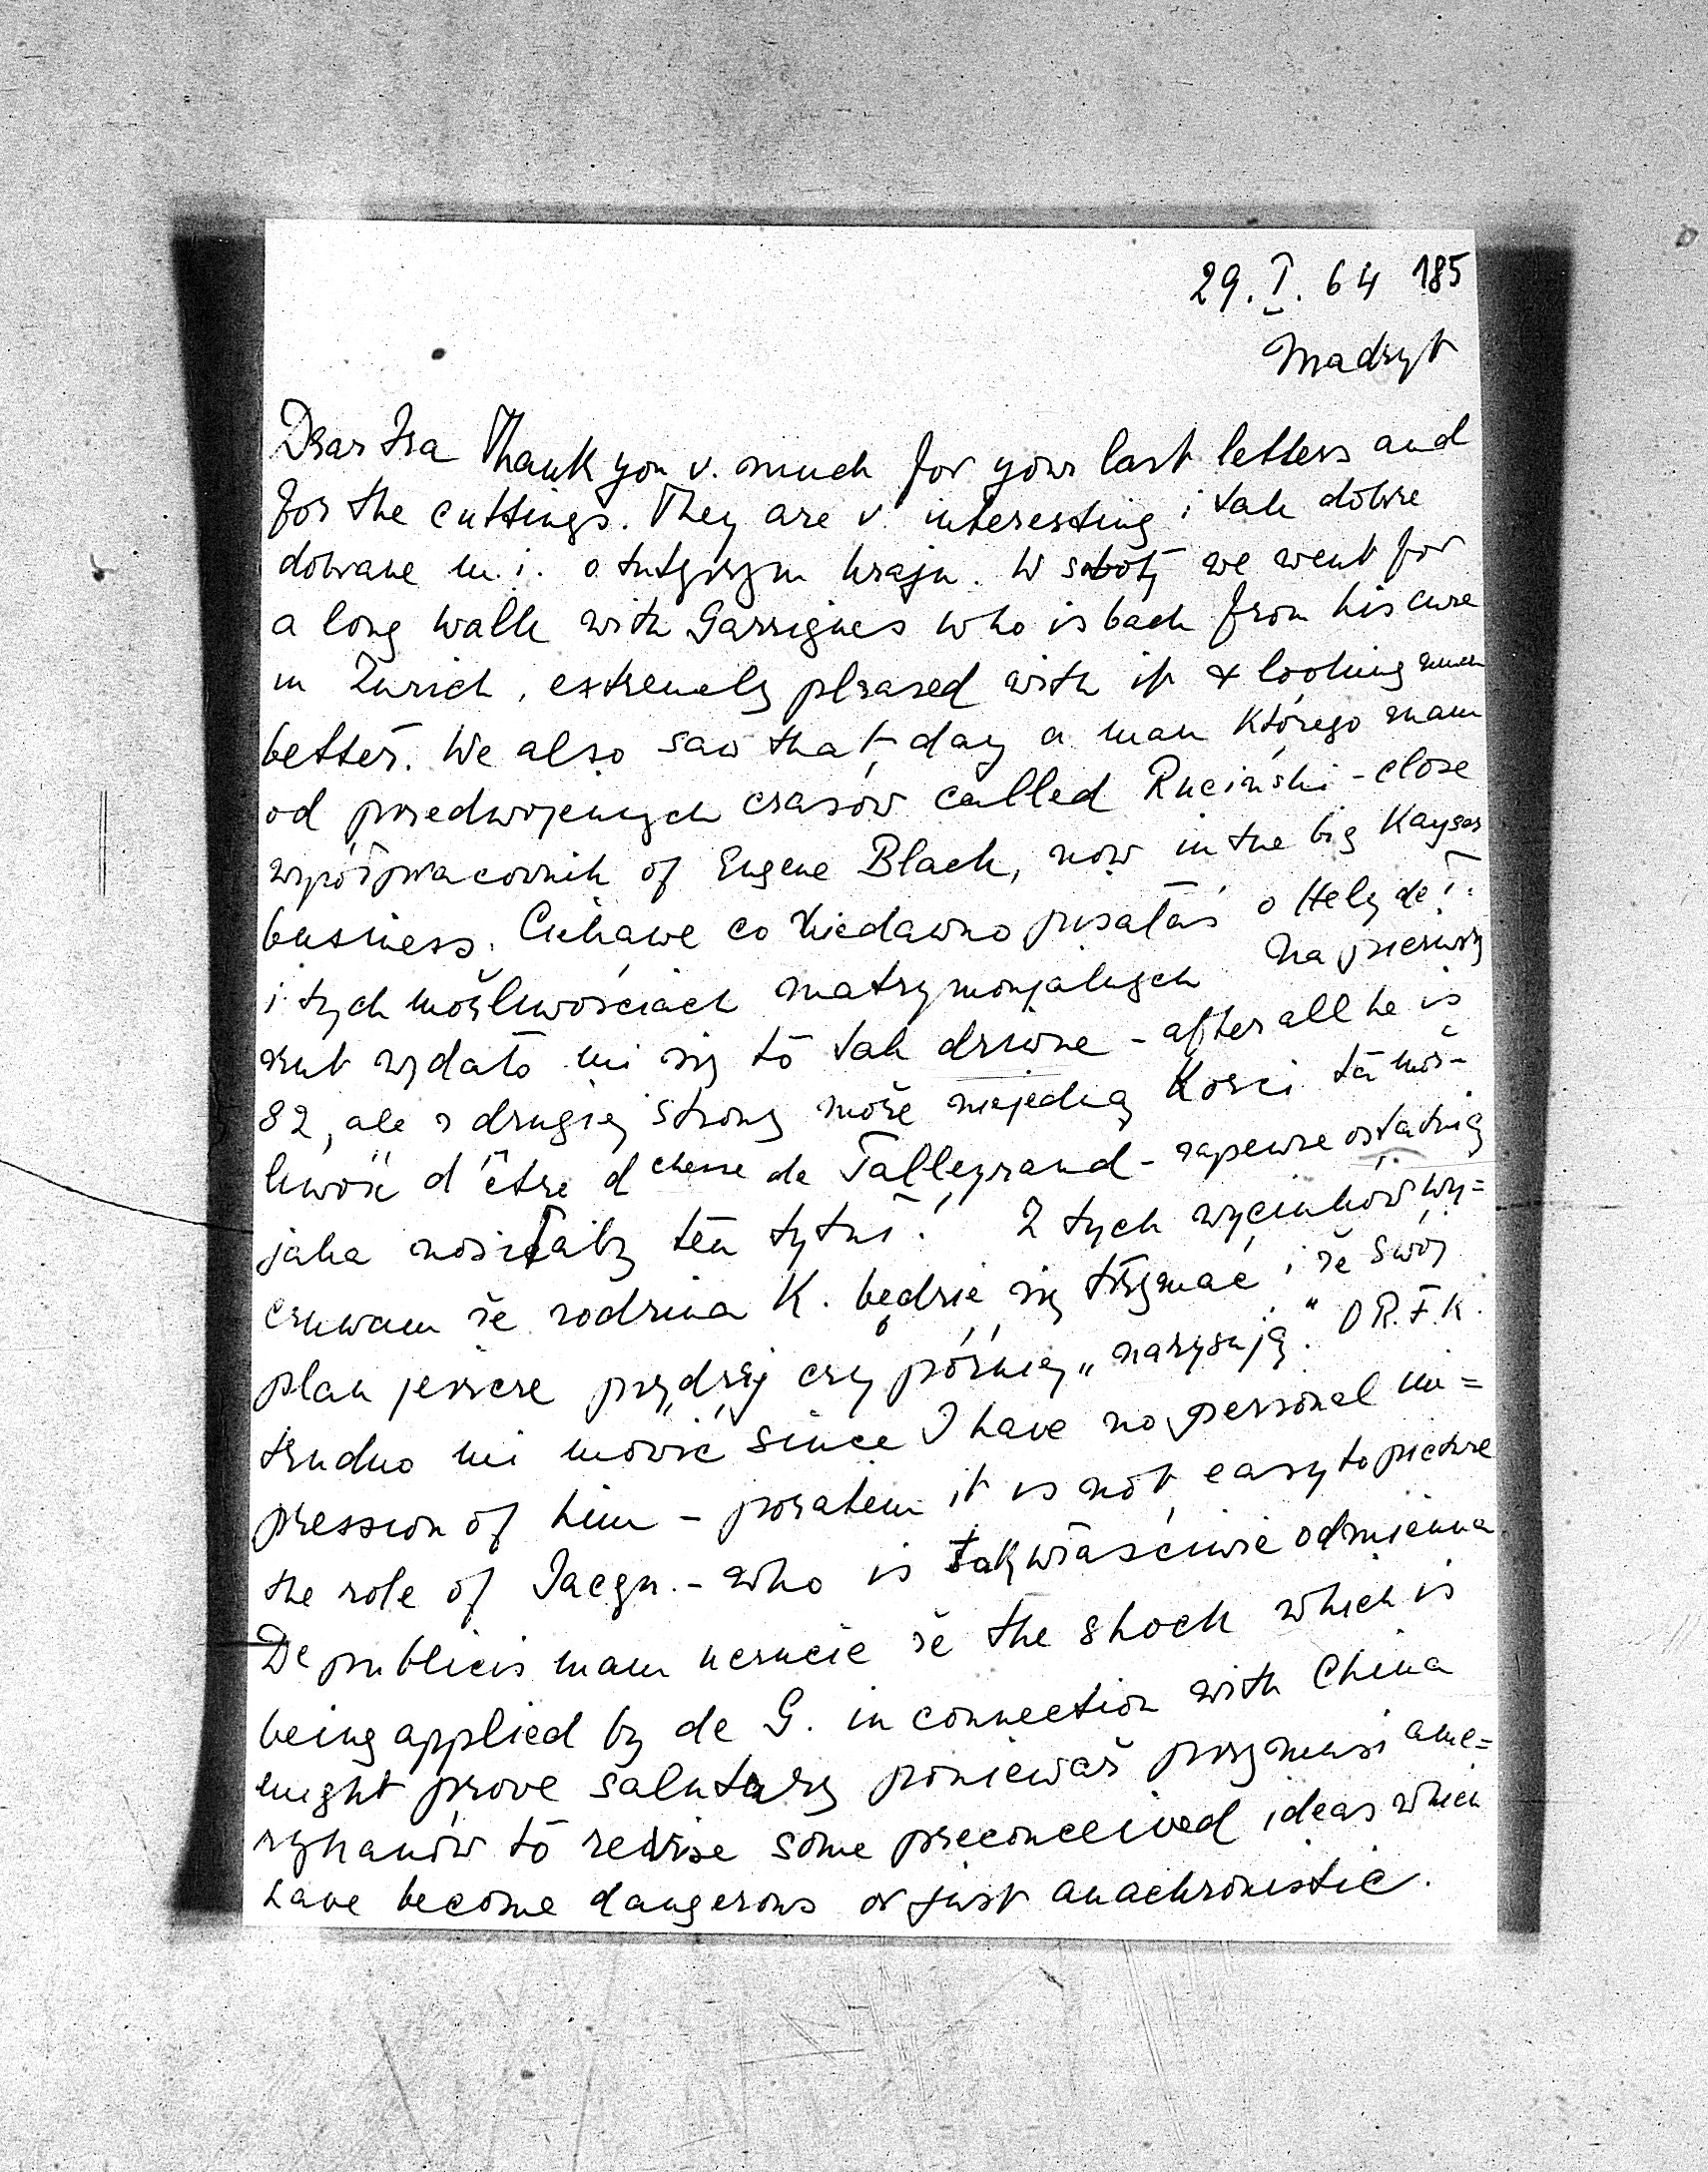 29. I. 64 185
Madryt
Dear Isa Thank you v. much for your last letters and
for the cuttings. They are v. interesting i tak dobrze
dobrane m.i. o tutejszym kraju. W sobotę we went for
a long walk with Garrigues who is back from his cure
in Zurich, extremely pleased with it & looking much
better. We also saw that day a man którego znam
od przedwojennych czasów called Ruciński - close
współpracownik of Eugene Black, now in the big Kayser
business. Ciekawe co niedawno pisałaś o Hely de T.
i tych możliwościach matrymonjalnych. Na pierwszy
rzut wydało mi się to tak dziwne - after all he is
82, ale z drugiej strony może niejedną kusci ta moż-
liwość d'être dchesse de Talleyrand - zapewne ostatnią
jaka nosiłaby ten tytuł! Z tych wycinków wy=
czuwam że rodzina K. będzie się trzymać i że swój
plan jeszcze prędzej czy później „narysują." O R.F.K.
trudno mi mówić since I have no personal im=
pression of him - pozatem it is not easy to picture
the role of Jacqu. - who is tak właściwie odmienna
De publicis mam uczucie że the shock which is
being applied by de G. in connection with China
might prove salutary ponieważ przymusi ame=
rykanów to revise some preconceived ideas which
have become dangerous or just anachronistic.